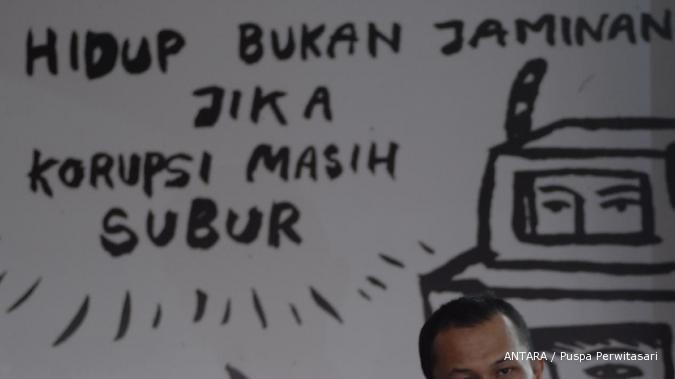 HIDUP BUKAN JAMINAN
JIKA
KORUPSI MASIH
SUBUR
ANTARA / Puspa Perwitasari